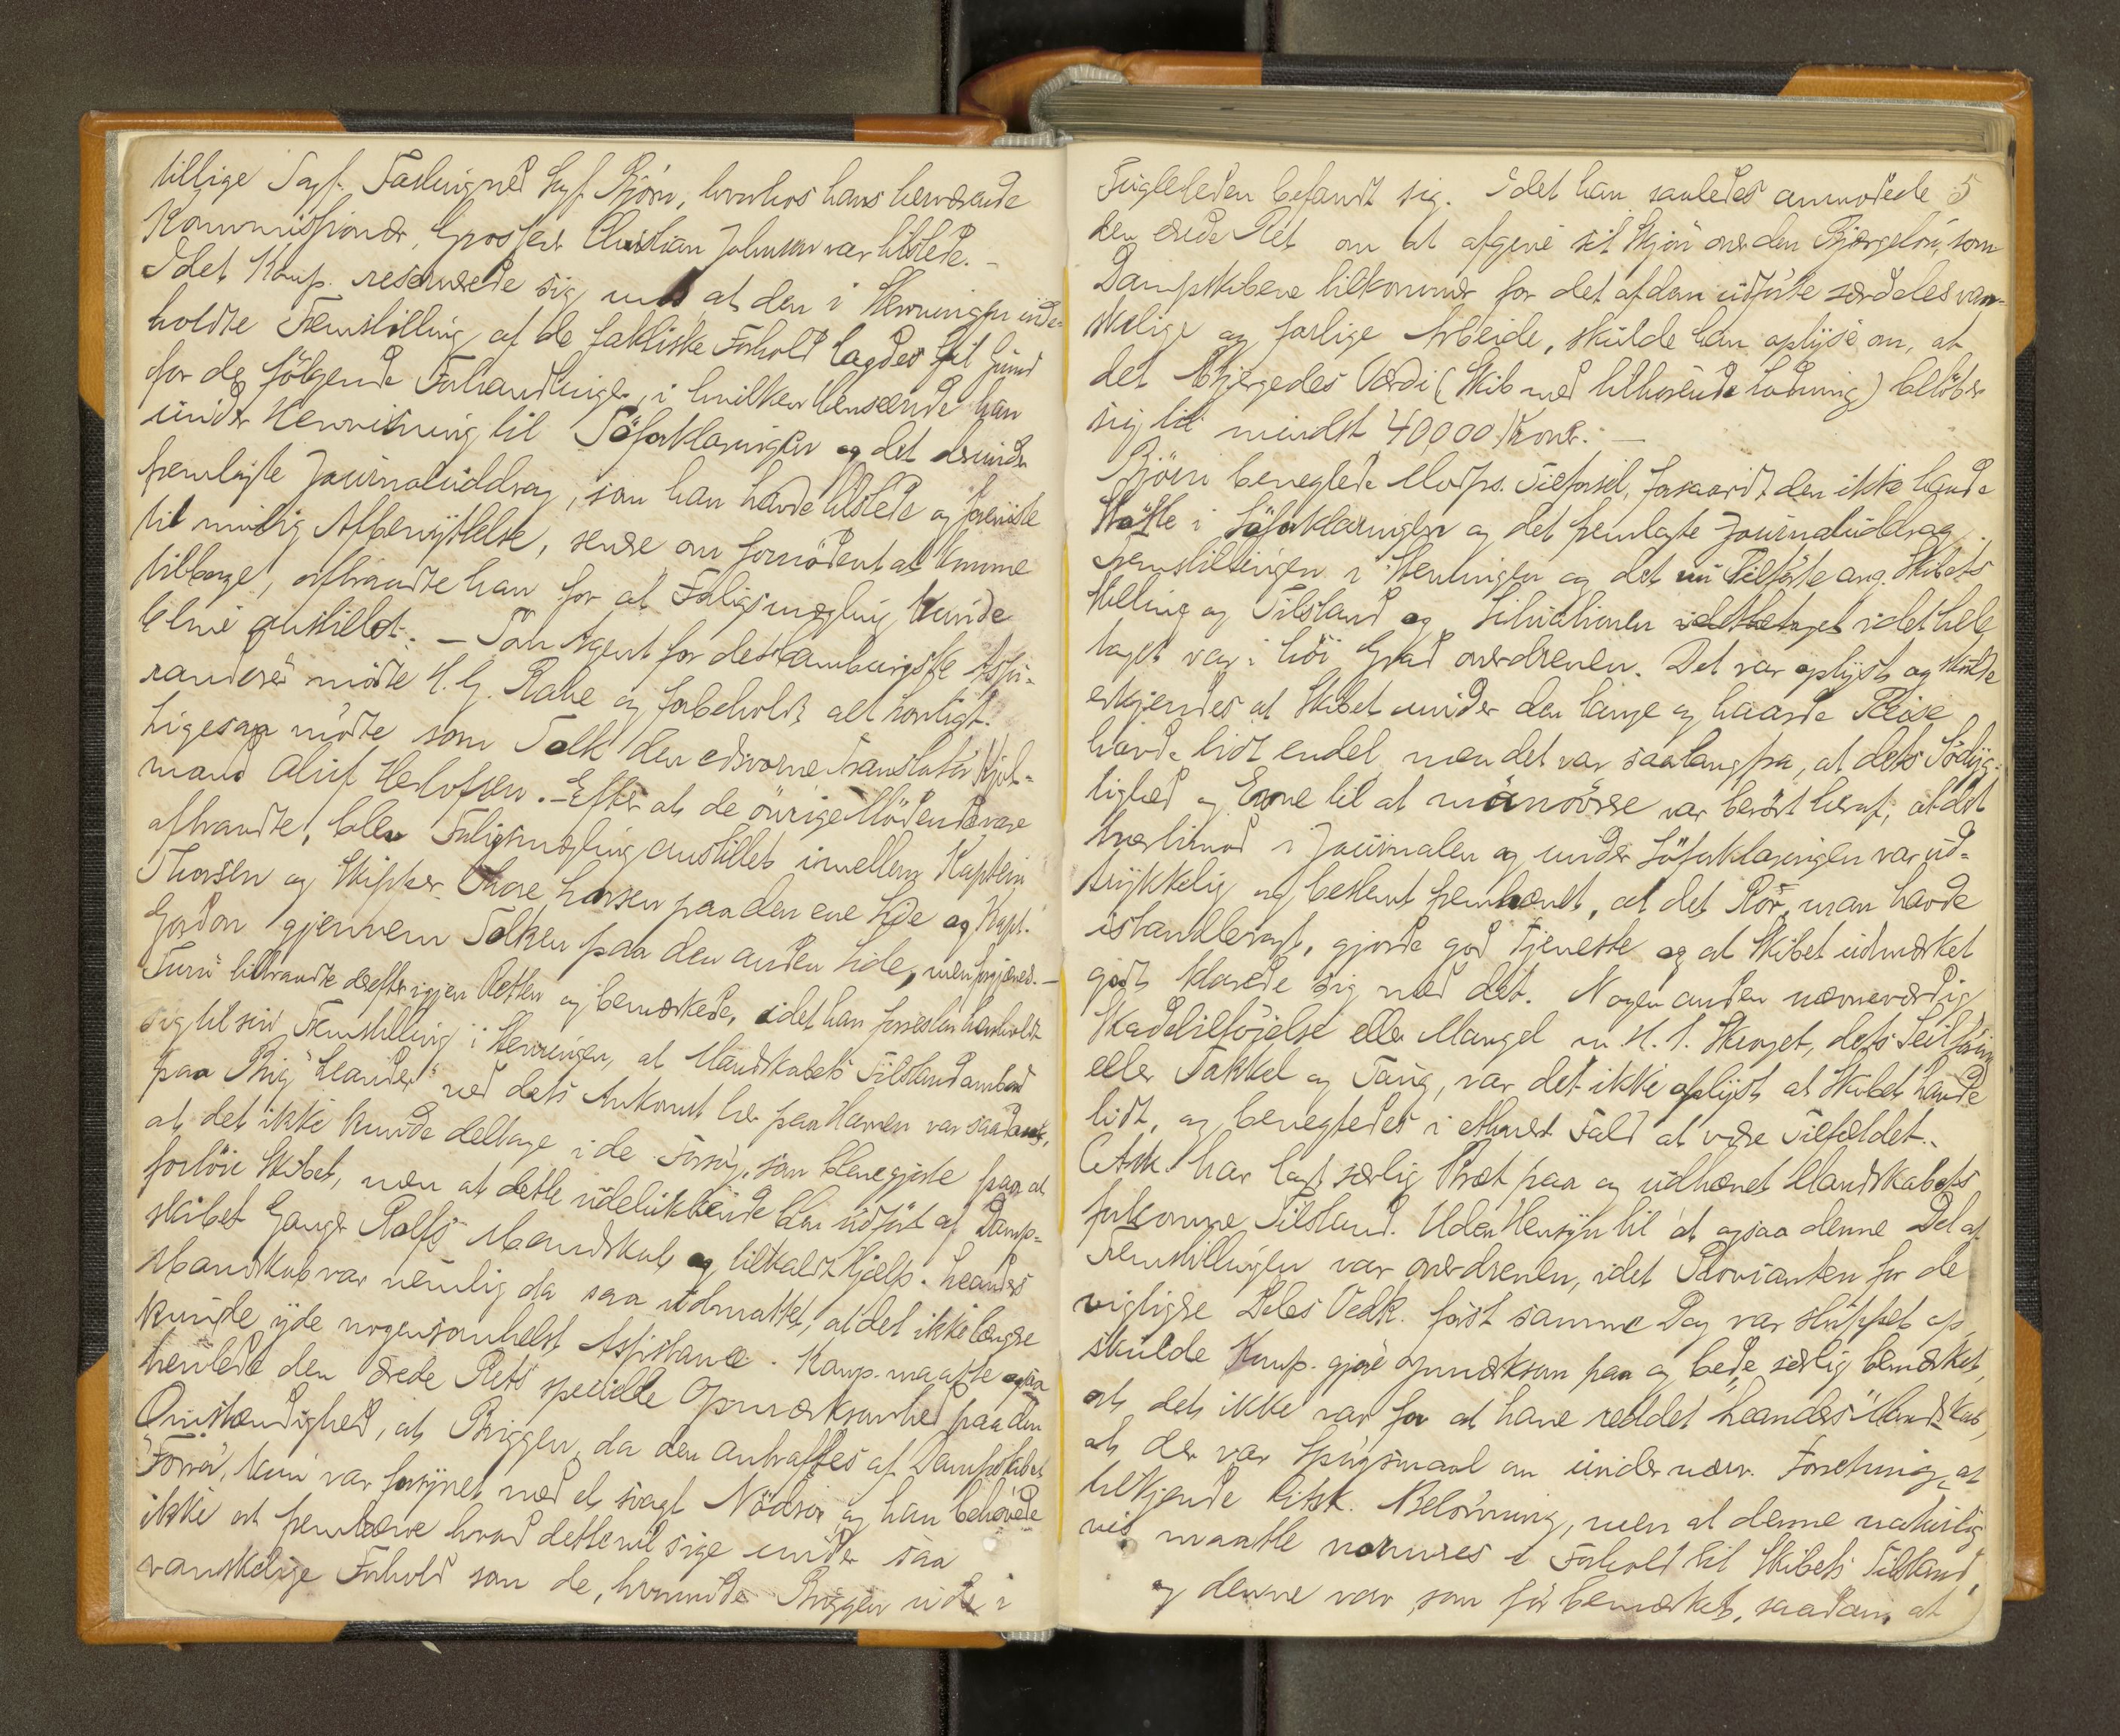 tillige Sagf. Fasting ved Sagf. Bjørn, hvorhos hans herværende
Kommissionær, Grosserer Christian Johnson var tilstede. -
Idet Komp. reserverede sig mod at den i Stevningen inde-
holdte Fremstilling af de faktiske Forhold lagdes til Grund
for de følgende Forhandlinger, i hvilken Henseende han
under Henvisning til Søforklaringen og det derunder
fremlagte Journaluddrag, som han havde tilstede og foreviste
til mulig Afbenyttelse, senere om fornødent at komme
tilbage, aftraadte han for at Forligsmægling kunde
blive anstillet. - Som Agent for det Hamburgske Assu-
randører mødte H. G. Rabe og forbeholdt alt lovligt.
Ligesaa mødte som Tolk den edsvorne Translatør Kjøb-
mand Oluf Herlofsen. - Efter at de øvrige Mødende vare
aftraadte, blev Forligsmægling anstillet imellem Kaptein
Thorsen og Skipper Thore Larsen paa den ene Side og Kapt.
Gordon gjennem Tolken paa den anden Side, men forgjæves. -
Furu tiltraadte derefter igjen Retten og bemærkede, idet han forresten henholdt
sig til sin Fremstilling i Stevningen, at Mandskabets Tilstand ombord
paa Brig "Leander" ved dets Ankomst her paa Havnen var saadant,
at det ikke kunde deltage i de Forsøg, som bleve gjorte paa at
fortøie Skibet, men at dette udelukkende blev udført af Damp-
skibet Ganger Rolfs Mandskab og tilkaldt Hjælp. Leanders
Mandskab var nemlig da saa udmattet, at det ikke længere
kunde yde nogensomhelst Assistance. Komp. maatte ogsaa
henlede den ærede Rets specielle Opmærksomhed paa den
Omstændighed, at Briggen, da den antraffes af Dampskibet
"Forra", kun var forsynet med et svagt Nødror og han behøvede
ikke at fremhæve hvad dette vil sige under saa
vanskelige Forhold som de, hvorunder Briggen ude i
Fugleleden befandt sig. Idet han saaledes anmodede 5
den ærede Ret om at afgive sit Skjøn over den Bjergeløn, som
Dampskibene tilkommer for det af dem udførte særdeles van-
skelige og farlige Arbeide, skulde han oplyse om, at
det Bjergedes Værdi (Skib med tilhørende Ladning) beløber
sig til mindst 40,000 Kroner. -
Bjørn benegtede Modps. Tilførsel, forsaavidt den ikke havde
Støtte i Søforklaringen og det fremlagte Journaluddrag.
Fremstillingen i Stevningen og det nu Tilførte ang. Skibets
Stilling og Tilstand og Situationen idetheletaget idethele
taget var i høi Grad overdreven. Det var oplyst og skulde
erkjendes at Skibet under den lange og haarde Reise
havde lidt endel, men det var saa langt fra, at dets Sødyg-
tighed og Evne til at manøvrere var berørt heraf, at det
tvertimod i Journalen og under Søforklaringen var ud-
trykkelig og bestemt fremhævet, at det Rør, man havde
istandbragt, gjorde god Tjeneste og at Skibet udmærket
godt klarede sig med det. Nogen anden nævneværdig
Skadetilføielse eller Mangel m. H. t. Skroget, dets Seilføring
eller Takkel og Toug, var det ikke oplyst at Skibet havde
lidt, og benegtedes i ethvert Fald at være Tilfældet.
Citsk. har lagt særlig Vægt paa og udhævet Mandskabets
forkomne Tilstand. Uden Hensyn til at ogsaa denne Del af
Fremstillingen var overdreven, idet Provianten for de
vigtigere Deles Vedk. først samme Dag var sluppet op
skulde Komp. gjøre opmærksom paa og bede særlig bemærket,
at det ikke var for at have reddet "Leanders" Mandskab,
at der var Spørgsmaal om under nærv. Forretning at
tilkjende Citsk. Belønning, men at denne naturlig
vis maatte normeres i Forhold til Skibets Tilstand,
og denne var, som før bemærket, saadan, at